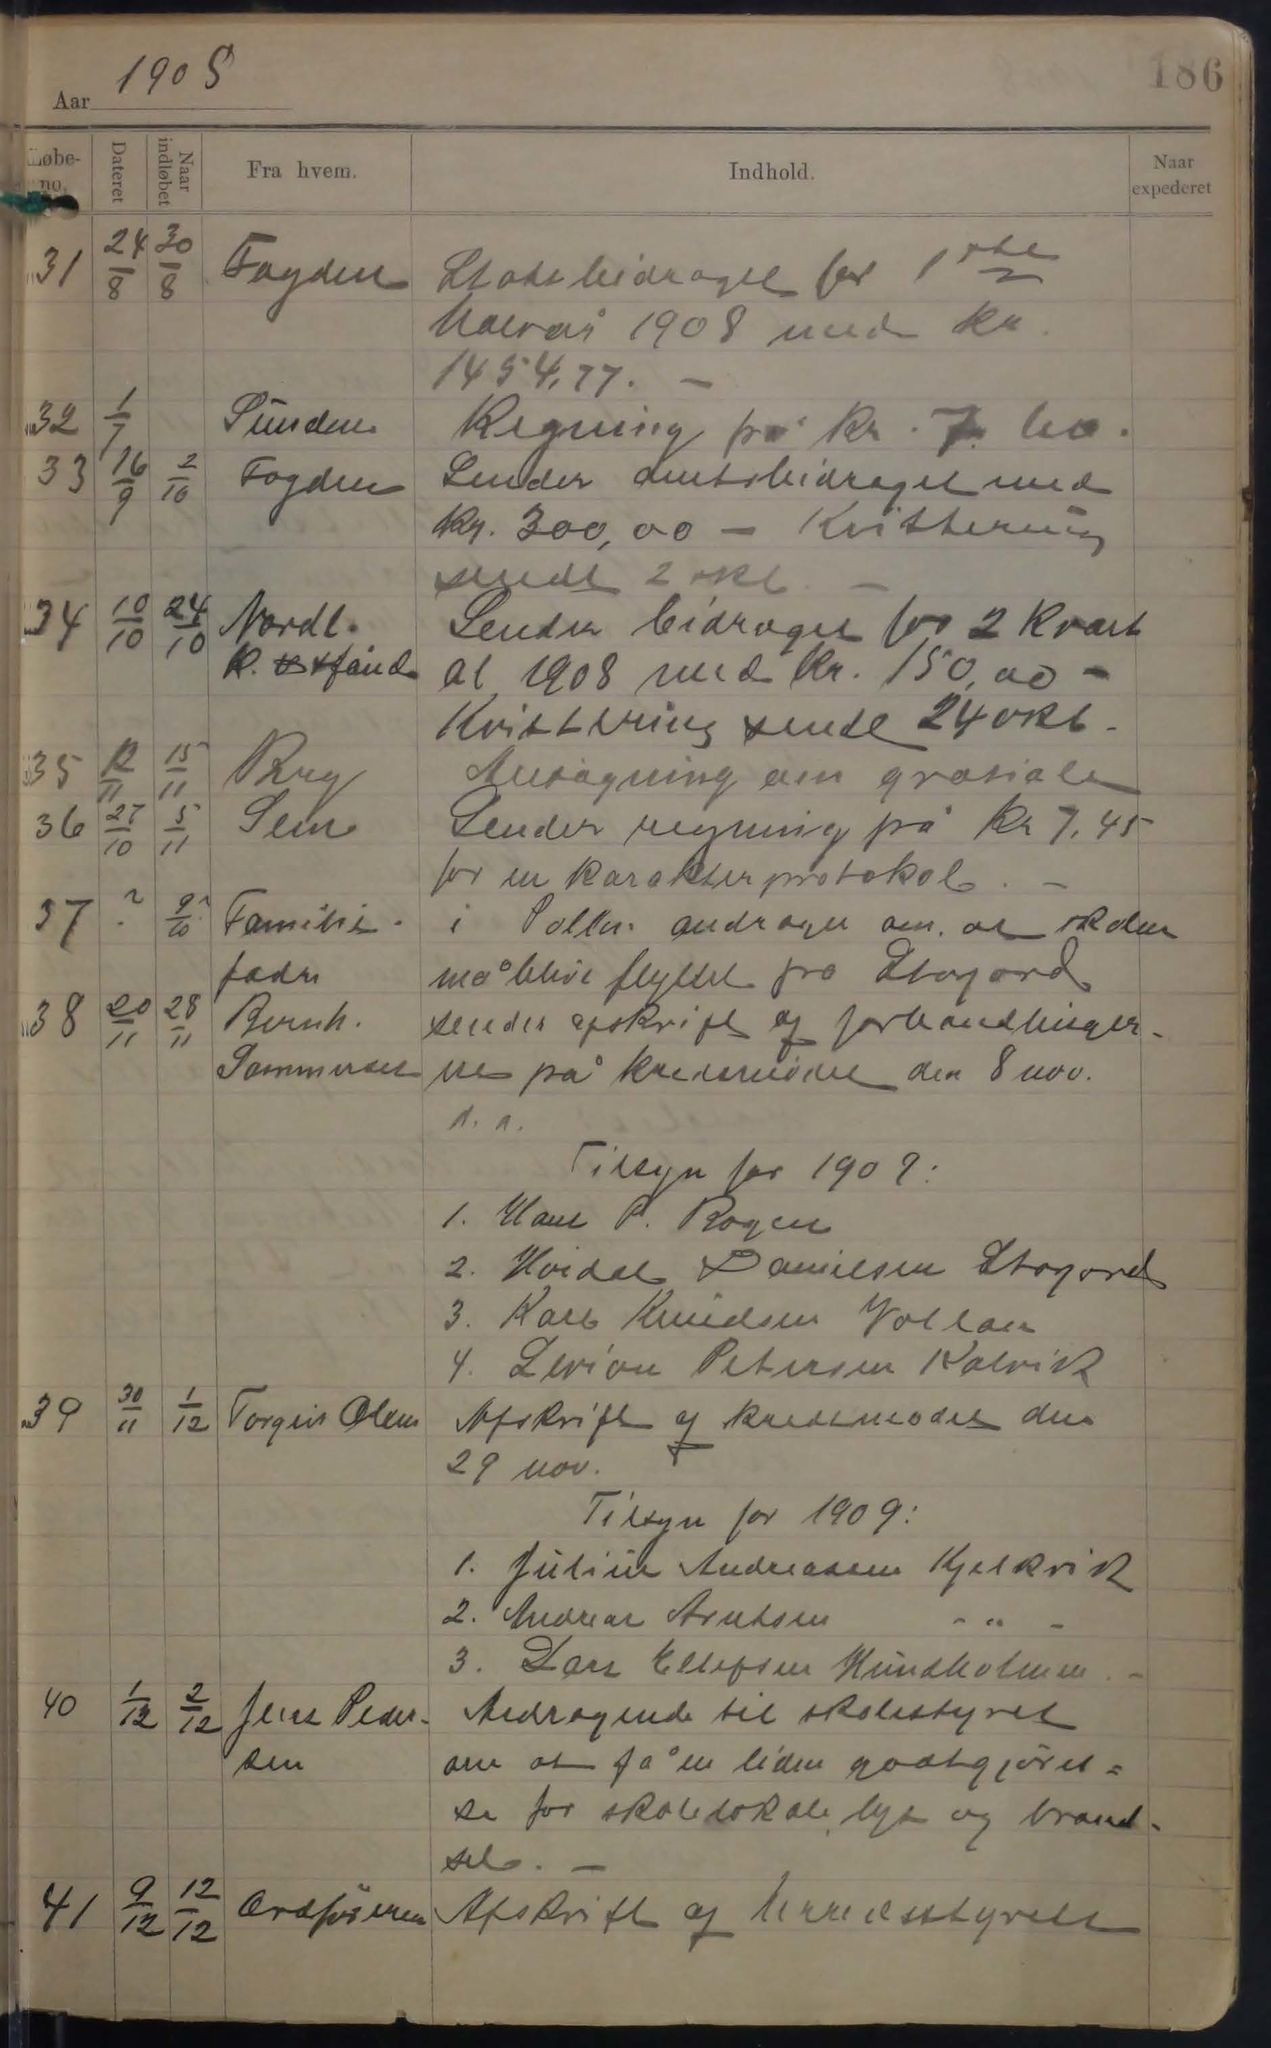 Aar 1908
186
Løbe-no.
Dateret
Naar indløbet
Fra hvem.
Indhold.
Naar expederet
31 24/8 30/8 Fogden Statsbidraget for 1ste
Halvår 1908 med kr.
1454,77. —
32 1/7 Sunden Regning på kr. 7.
33 16/9 2/10 Fogden Sender amtsbidraget med
kr. 300,00 — Kvittering
sendt 2 okt. —
34 10/10 24/10 Nordl. Sender bidraget for 2 kvart
k. sfond al 1908 med kr. 150,00 -
Kvittering sendt 24 okt.
35 12/11 15/11 Berg Ansøgning om gratiale
36 27/10 5/11 Sem Sender regning på kr 7,45
for en karakterprotokol. —
37 ? 9/10? Familie- i Pollen andrager om at skolen
fædre må blive flyttet fra Storjord
38 20/11 28/11 Bernh. sender afskrift af forhandlinger-
Sommerset ne på kredsmødet den 8 nov.
d. a.
Tilsyn for 1909:
1. Hans P. Rogen
2. Hvidal Danielsen Storjord
3. Karl Knudsen Vollan
4. Petersen Kalvik
39 30/11 1/12 Torgeir Olsen Afskrift af kredsmødet den
29 nov.
Tilsyn for 1909:
1. Julius Andreassen Kjelkvik
2. Andreas Arntsen - " -
3. Lars Ellefsen Hundholmen. -
40 1/12 2/12 Jens Peder- Andragende til skolestyret
sen om at få en liden godtgjørel=
se for skolelokale, lys og brænd-
sel. —
41 9/12 12/12 Ordføreren Afskrift af herredsstyrets